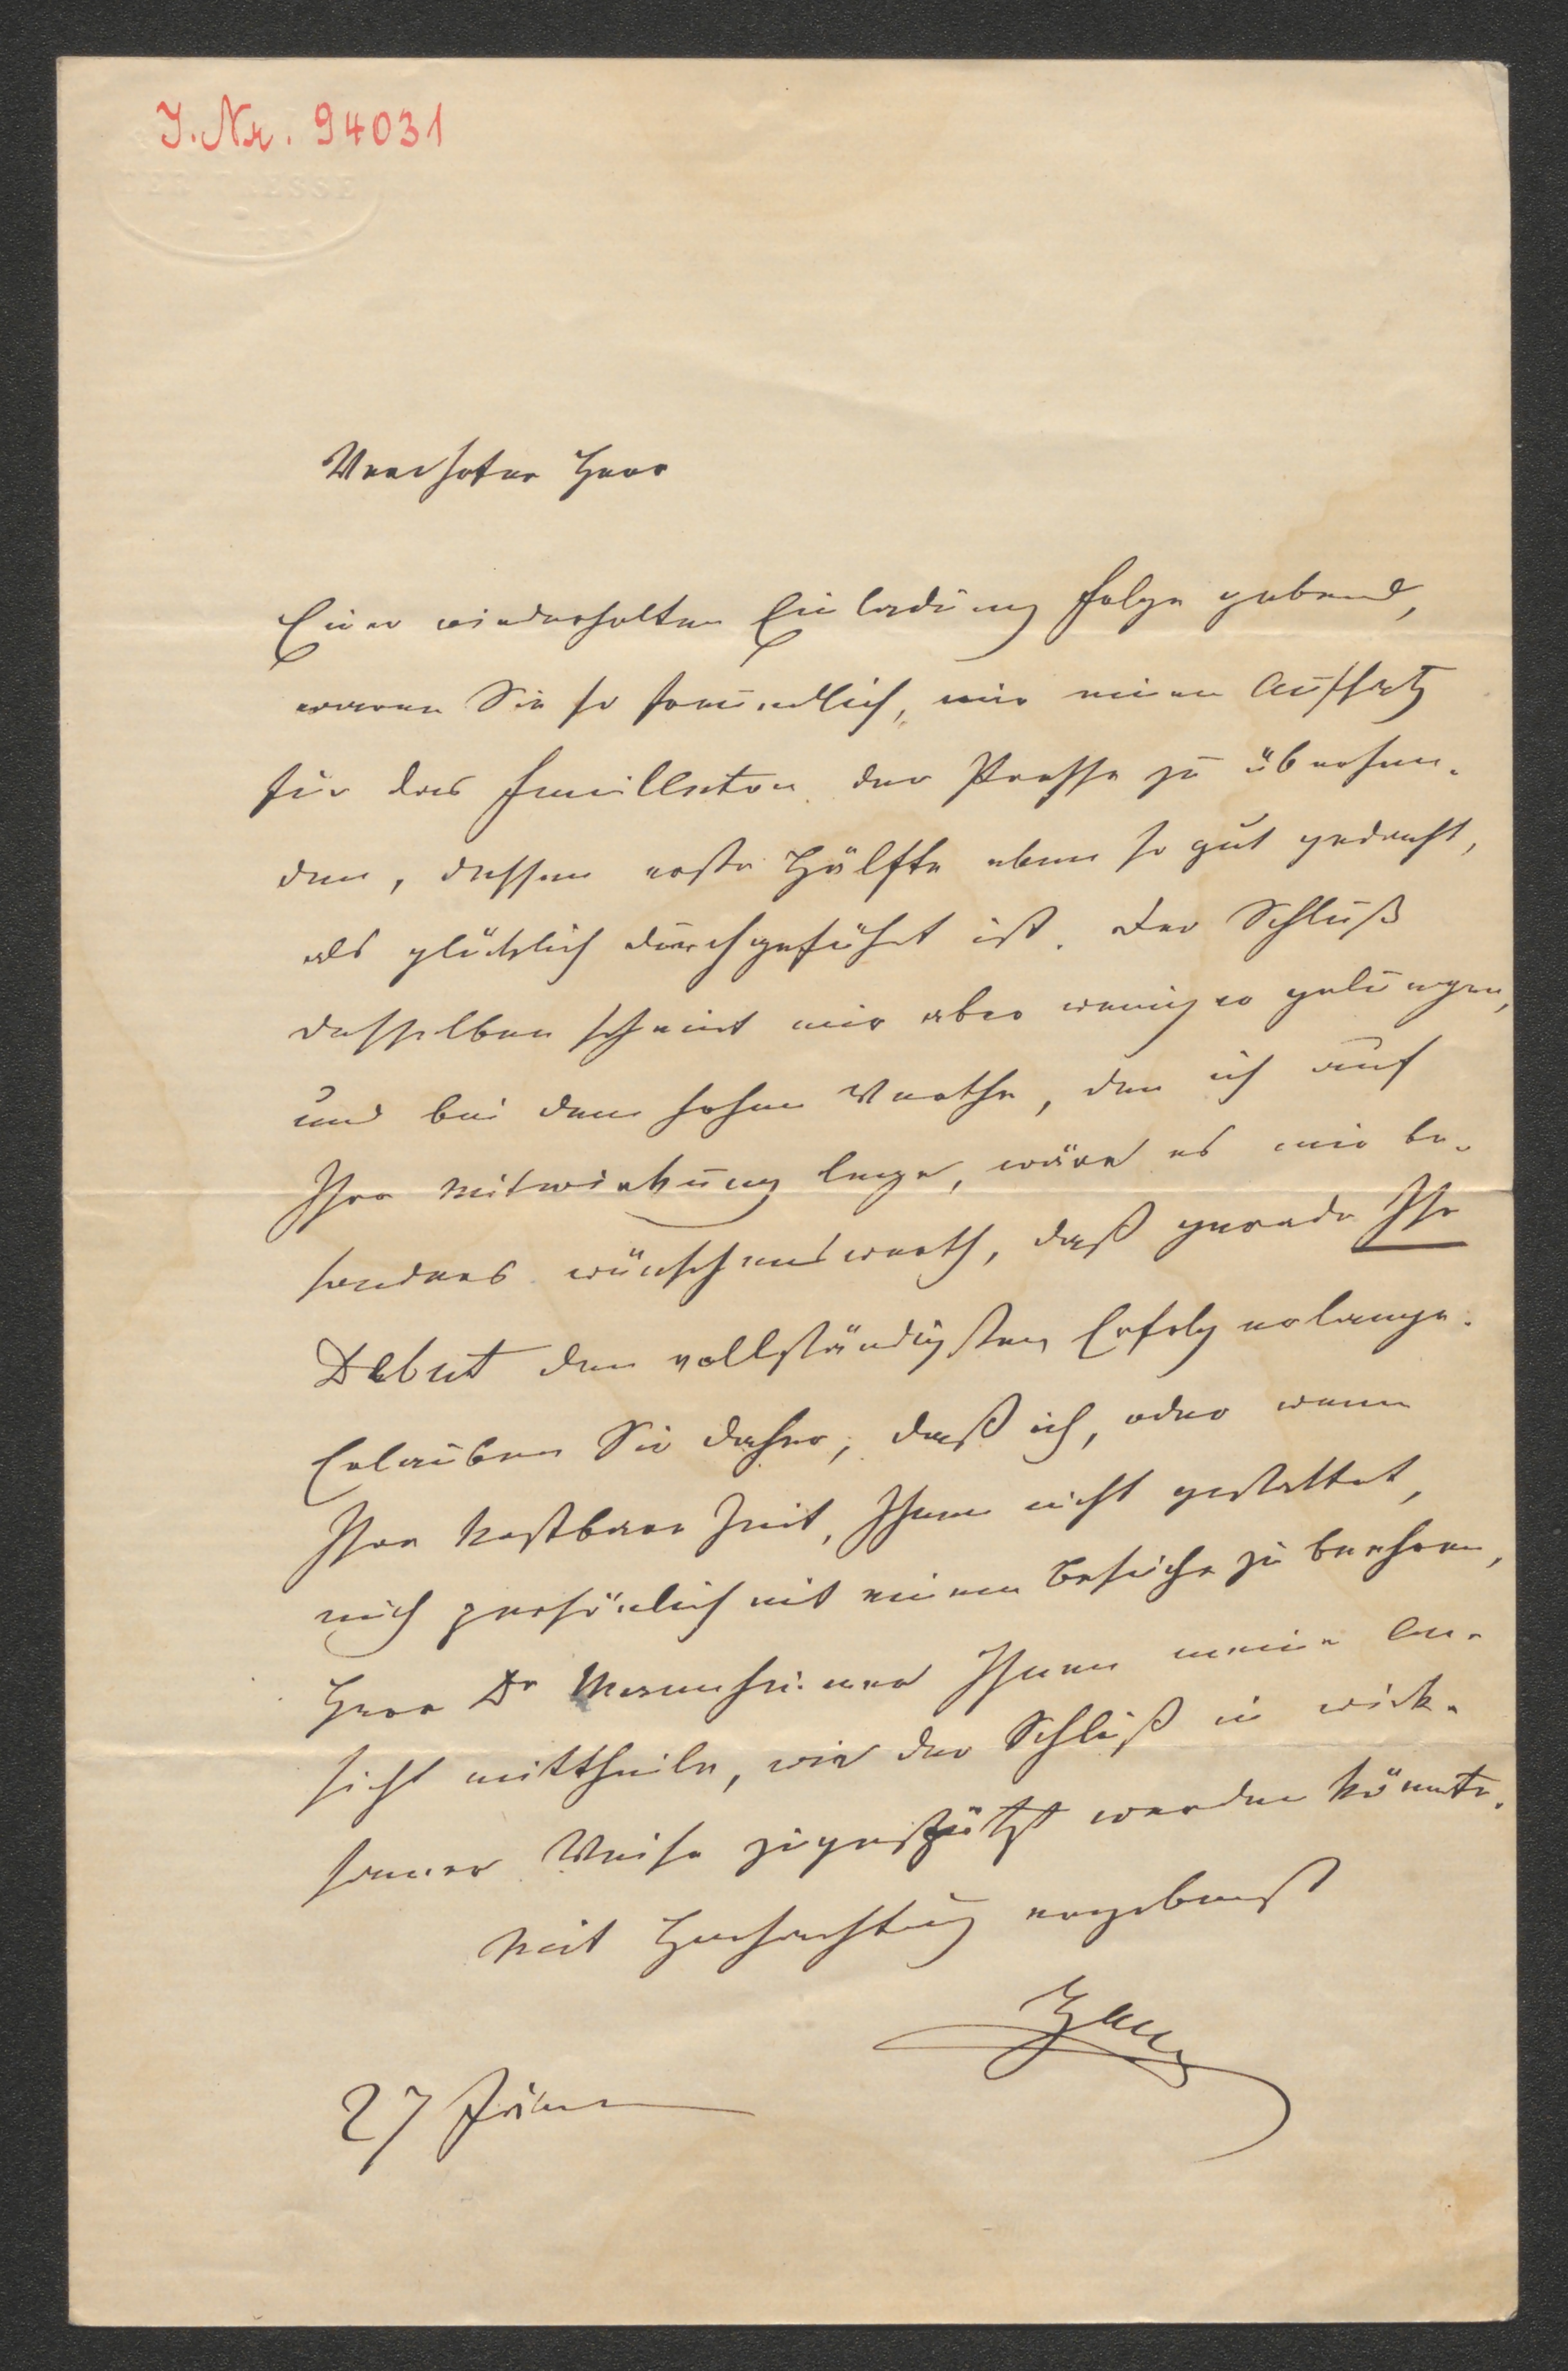 I. Nr. 94031
DER PRESSE
Verehrter Herr
Einer wiederholten Einladung folge gebend,
waren Sie so freundlich, mir einen Aufsatz
für das Feuilleton der Presse zu übersen-
den, dessen erste Hälfte eben so gut gedacht,
als glücklich durchgeführt ist. Der Schluß
desselben scheint mir aber weniger gelungen,
und bei dem hohen Werthe, den ich auf
Ihre Mitwirkung lege, wäre es mir be-
sonders wünschenswerth, daß gerade Ihr
Debut den vollständigsten Erfolg erlange.
Erlauben Sie daher, daß ich, oder wenn
Ihre kostbare Zeit, Ihnen nicht gestattet,
mich persönlich mit einem Besuche zu beehren,
Herr Dr Mannheimer Ihnen meine An-
sicht mittheile, wie der Schluß in wirk-
samer Weise zugespitzt werden könnte.
Mit Hochachtung ergebenst
Zang
27 Jänner